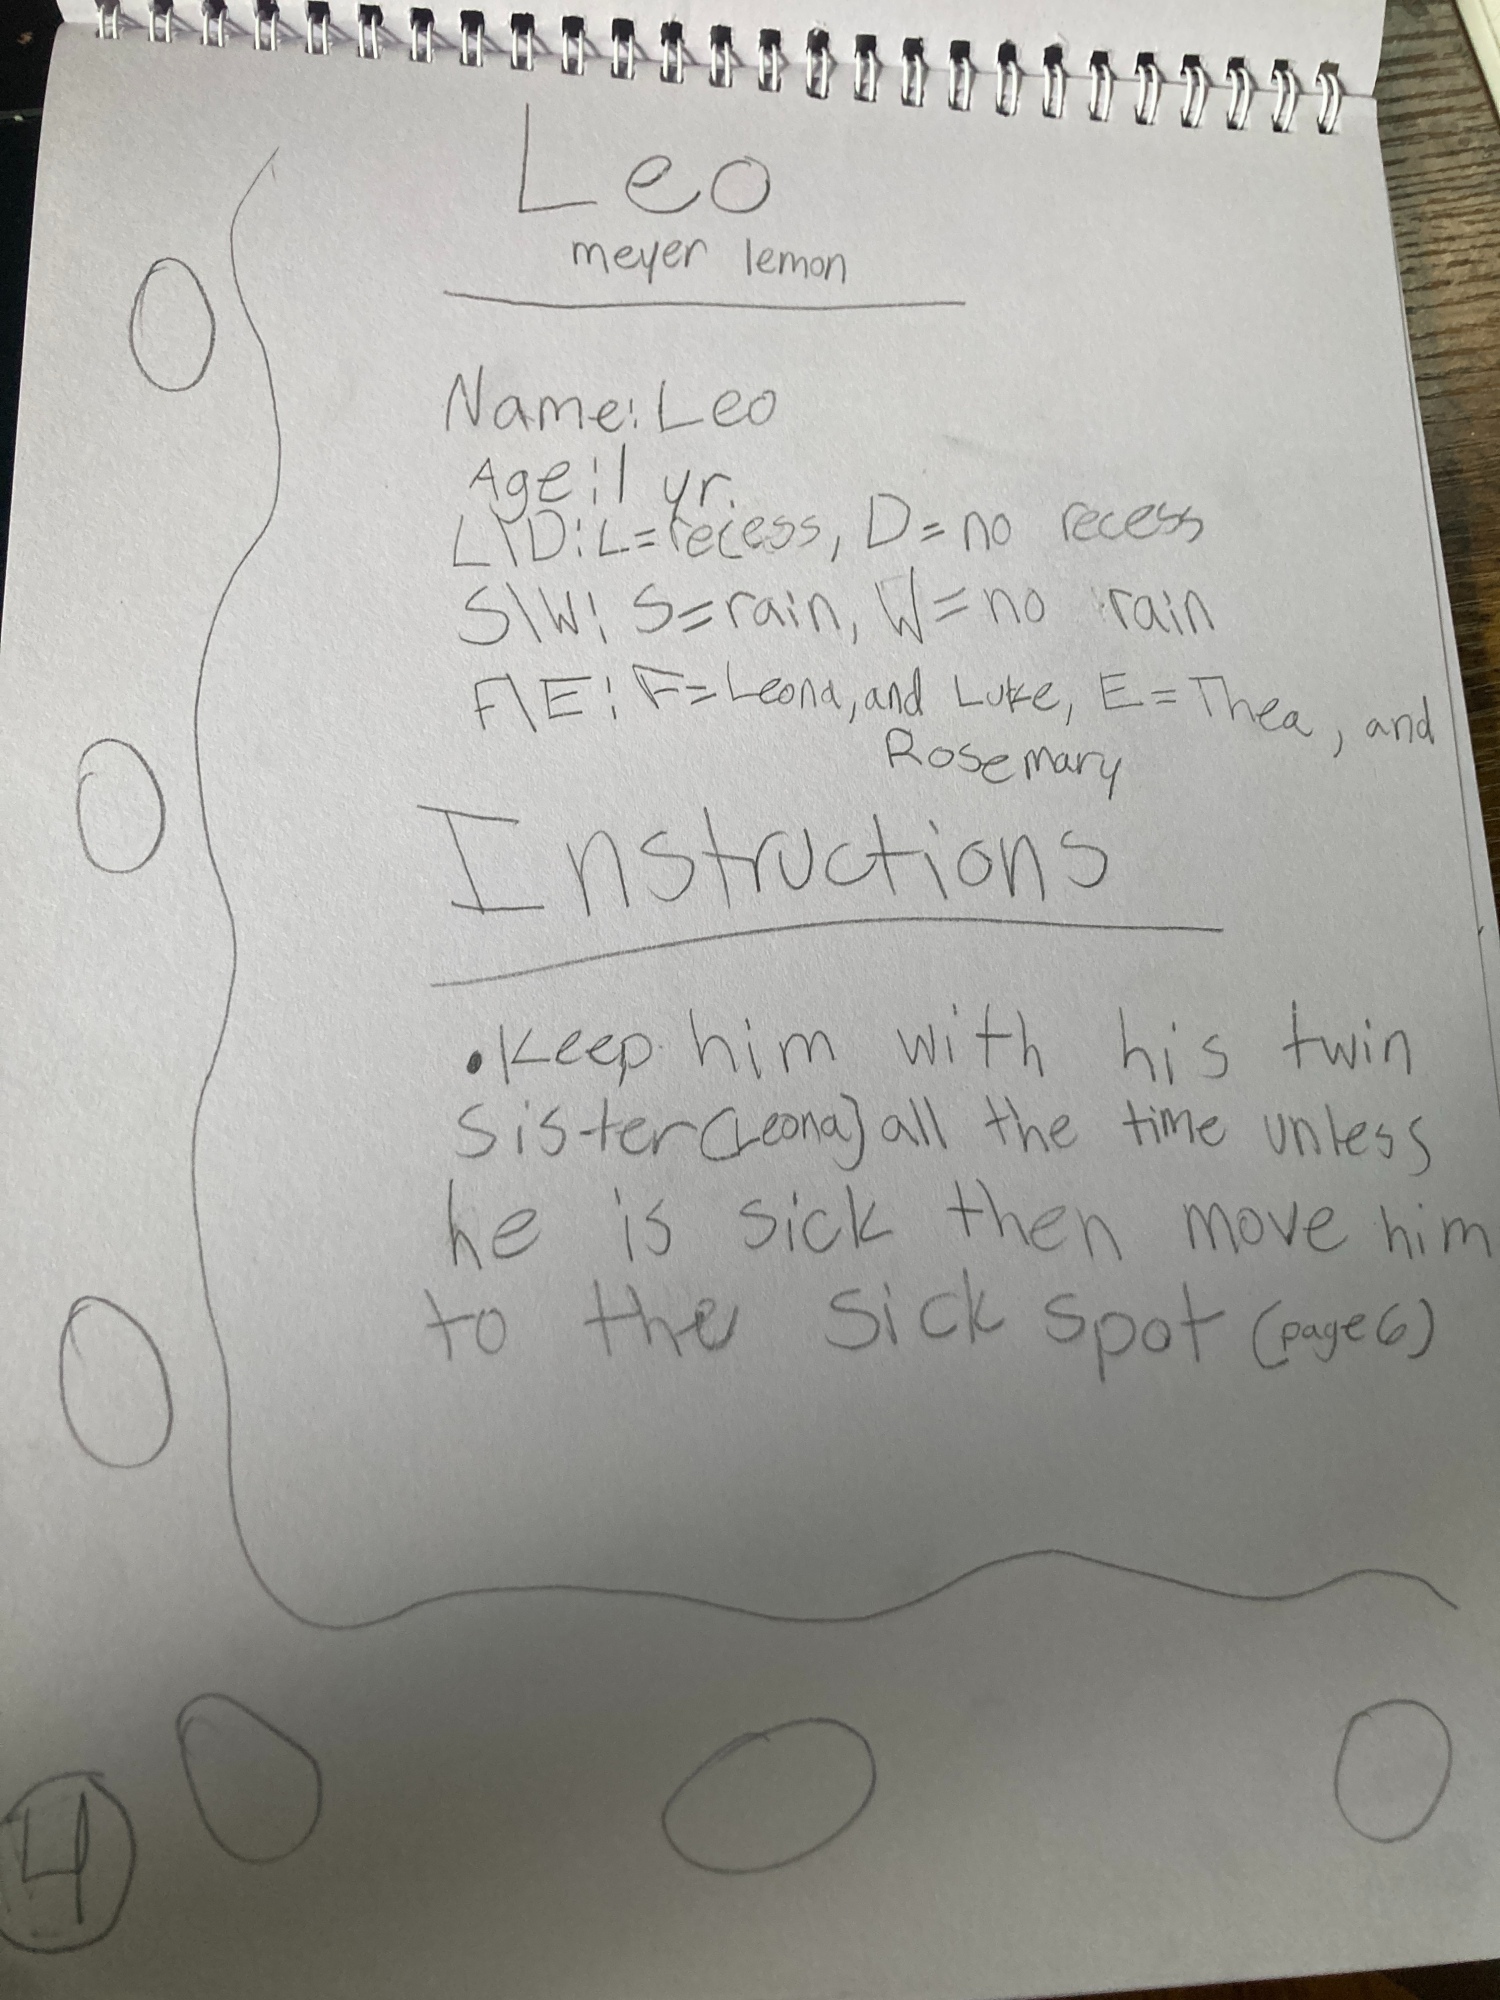 Leo
meyer lemon
Name: Leo
Age: 1 yr.
L\D: L=recess, D=no recess
S\W: S=rain, W=no rain
F\E: F=Leona, and Luke, E=Thea, and
Rosemary
Instructions
• Keep him with his twin
sister (Leona) all the time unless
he is sick then move him
to the sick spot (page 6)
4